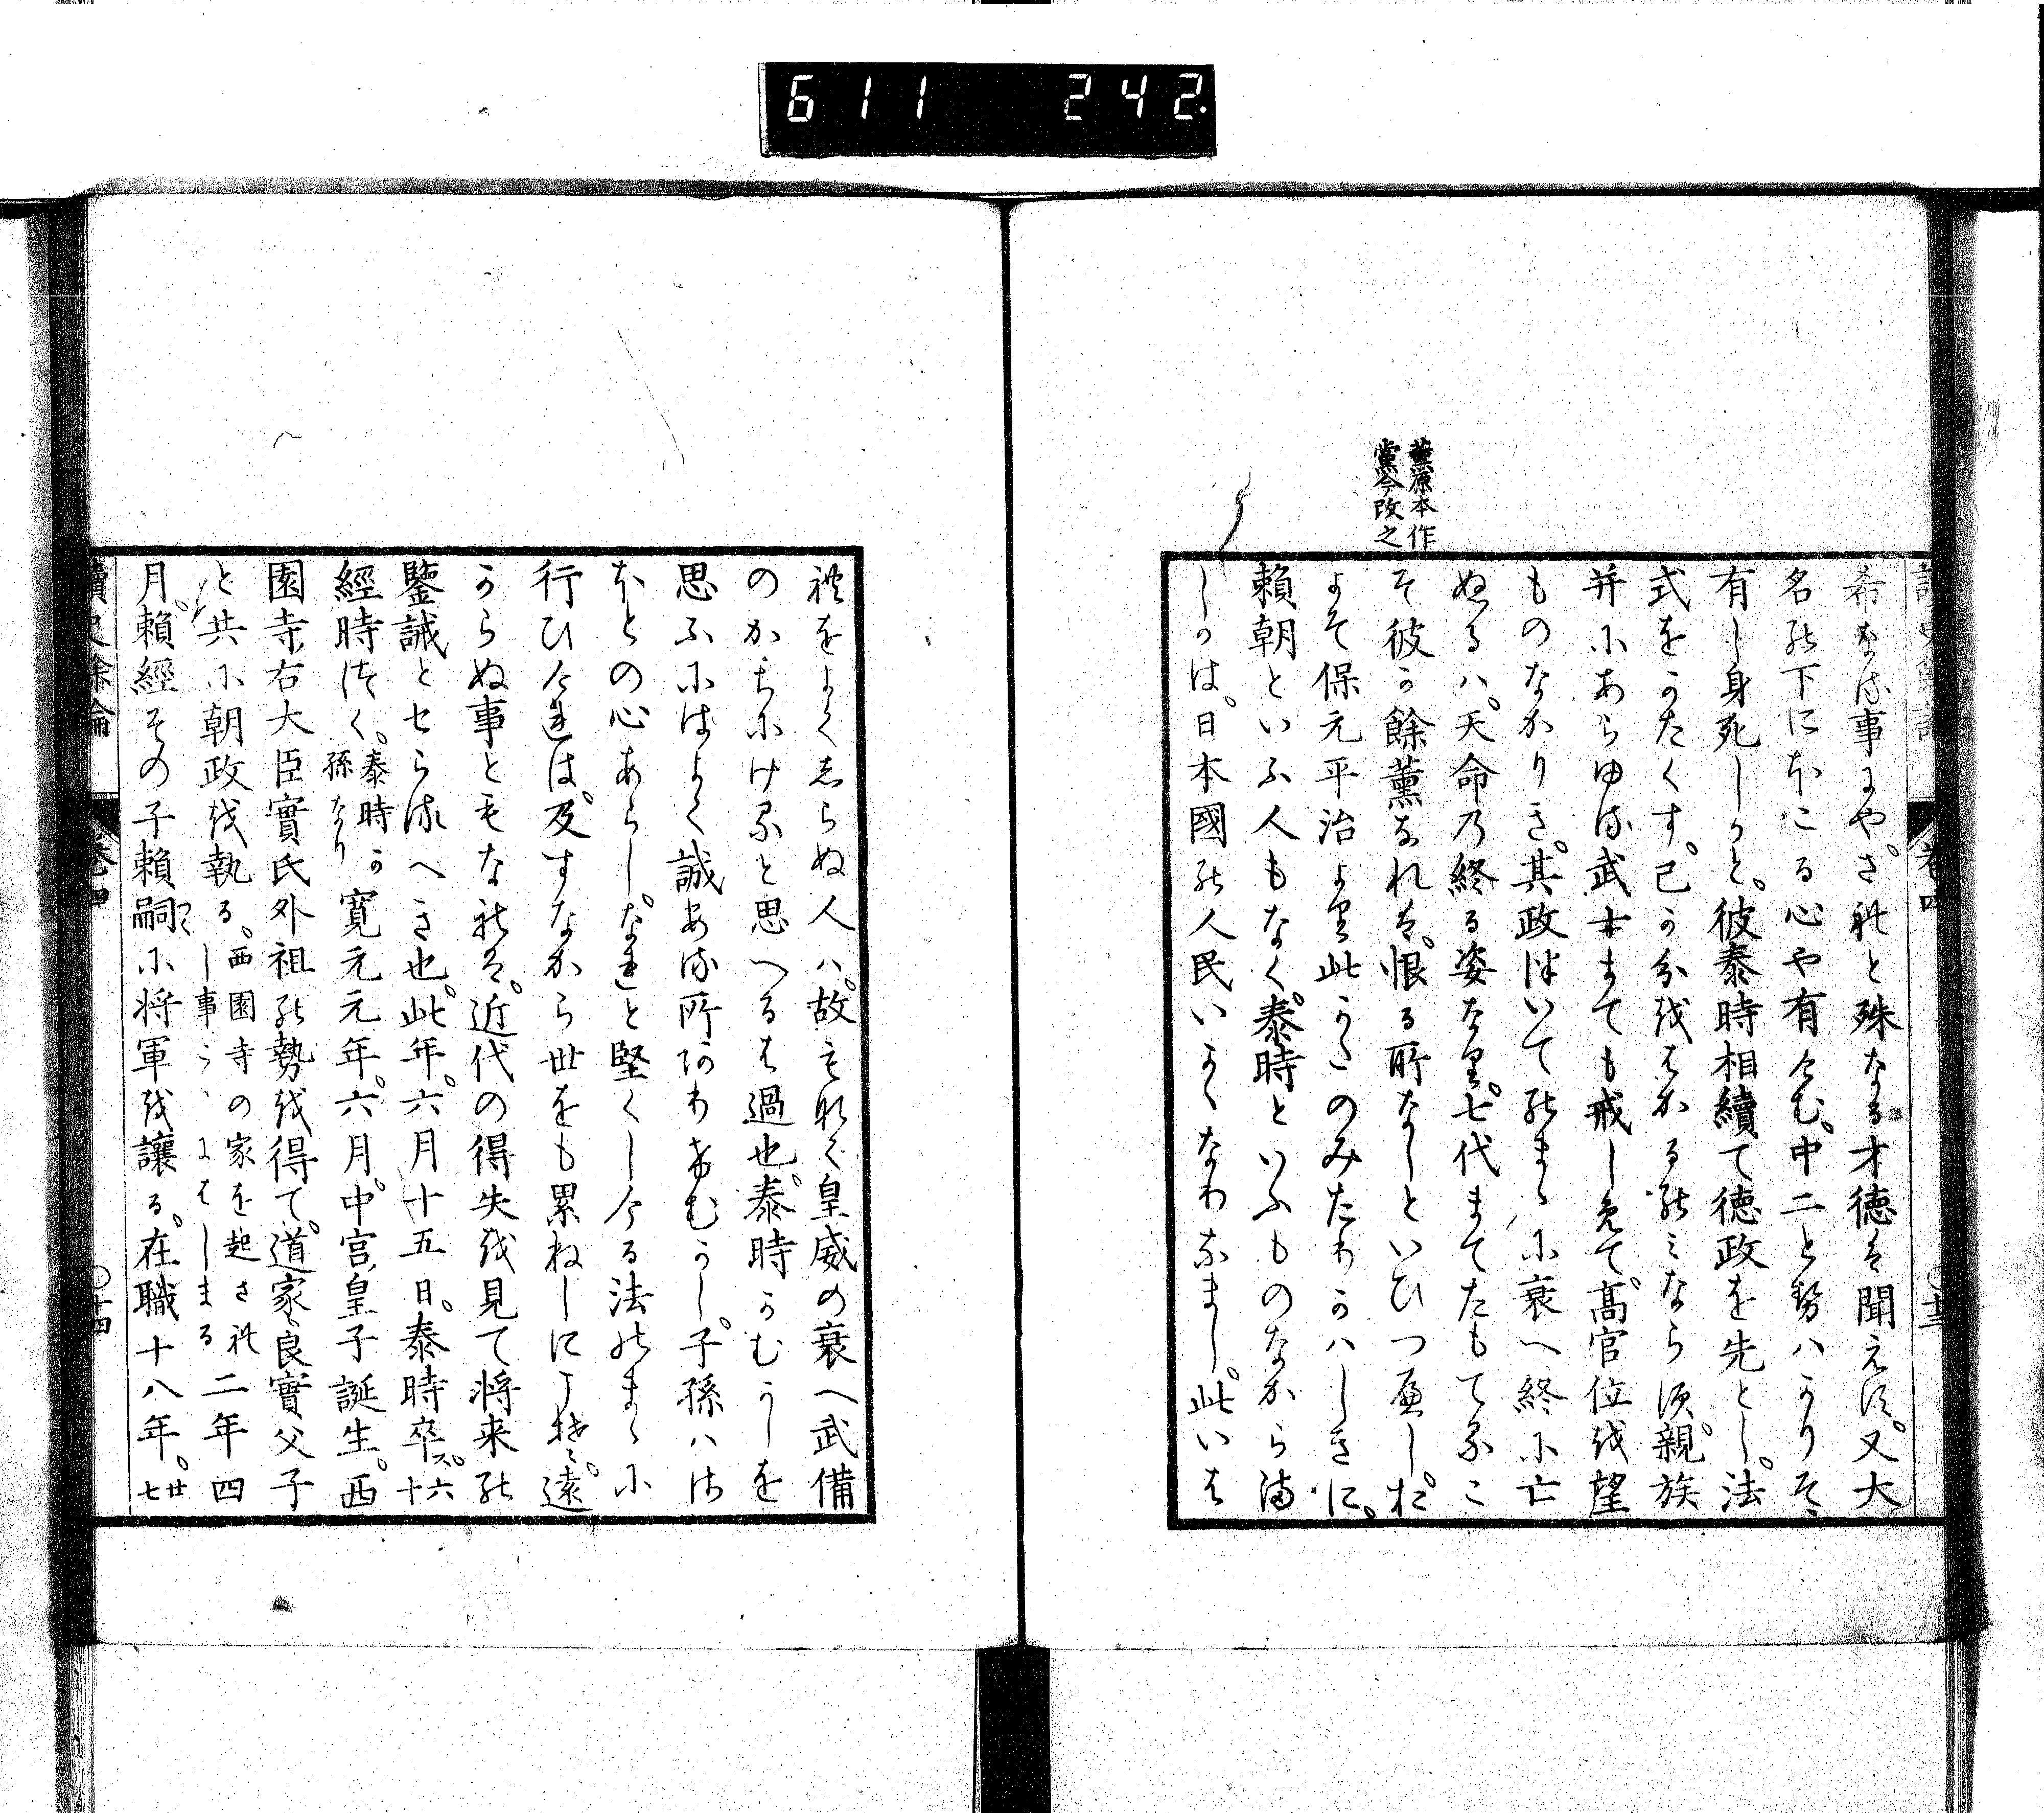 611 242.
讀史餘論 卷四 〇十三
薰原本作
黨今改之
希なる事にや。されと殊なる才徳は聞えす。又大
名の下にほこる心や有けむ。中二とせハかりそ
有し身死しかと。彼泰時相續て徳政を先とし。法
式をかたくす。己か分をはかるのみならす。親族
并にあらゆる武士まても戒しめて。髙官位を望
ものなかりき。其政次いてのまゝに衰へ終に亡
ぬるハ。天命乃終る姿なり。七代まてたもてるこ
そ彼か餘薫なれは。恨る所なしといひつへし。お
よそ保元平治より此かたのみたりかハしきに。
頼朝といふ人もなく。泰時といふものなからま
しかは。日本國の人民いかゝなりなまし。此いは
れをよくしらぬ人ハ。故もなく皇威の衰へ武備
のかちにけると思へるは過也。泰時かむかしを
思ふにはよく誠ある所ありけむかし。子孫ハさ
ほとの心あらし。なれと堅くしける法のまゝに
行ひけれは。及すなから世をも累ねしにこそ。遠
からぬ事ともなれは。近代の得失を見て将来の
鑒誡とせらるへき也。此年。六月十五日。泰時卒ス。六十
經時つく。泰時か孫なり 寛元元年。六月。中宮皇子誕生。西
園寺右大臣實氏外祖の勢を得て。道家良實父子
と共に朝政を執る。西園寺の家を起されし事こゝにはしまる 二年四
月。頼經その子頼嗣に将軍を讓る。在職十八年。廿七
讀史餘論 卷四 〇十四